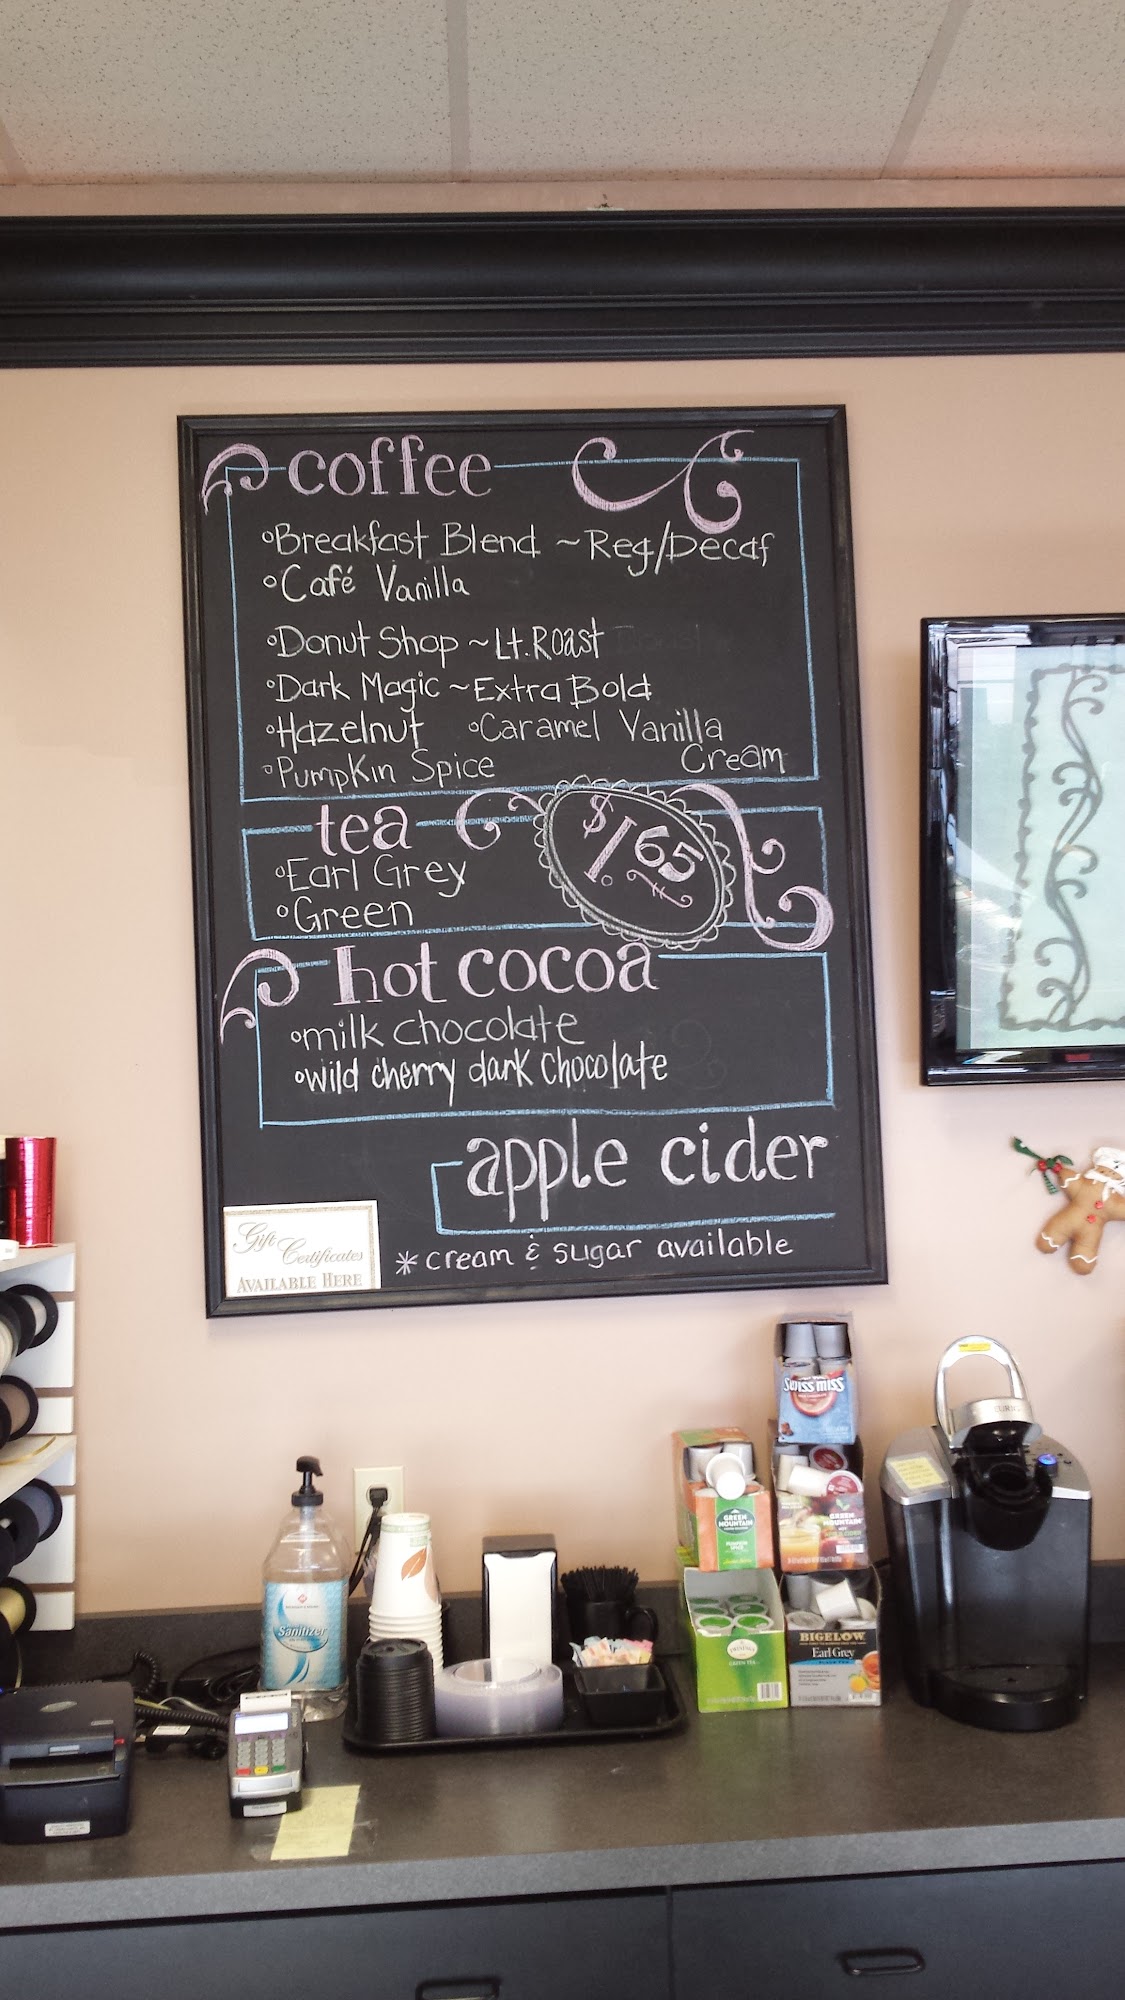 coffee
Breakfast Blend ~ Reg/Decaf
Café Vanilla
Donut Shop ~ Lt. Roast
Dark Magic ~ Extra Bold
Hazelnut
Caramel Vanilla
Cream
Pumpkin Spice
tea
$1.65
Earl Grey
Green
hot cocoa
milk chocolate
wild cherry dark chocolate
apple cider
* cream & sugar available
Gift
Certificates
AVAILABLE HERE
Swiss miss
GREEN
MOUNTAIN
PUMPKIN
SPICE
GREEN
MOUNTAIN
Sanitizer
TWININGS
GREEN TEA
BIGELOW
Earl Grey